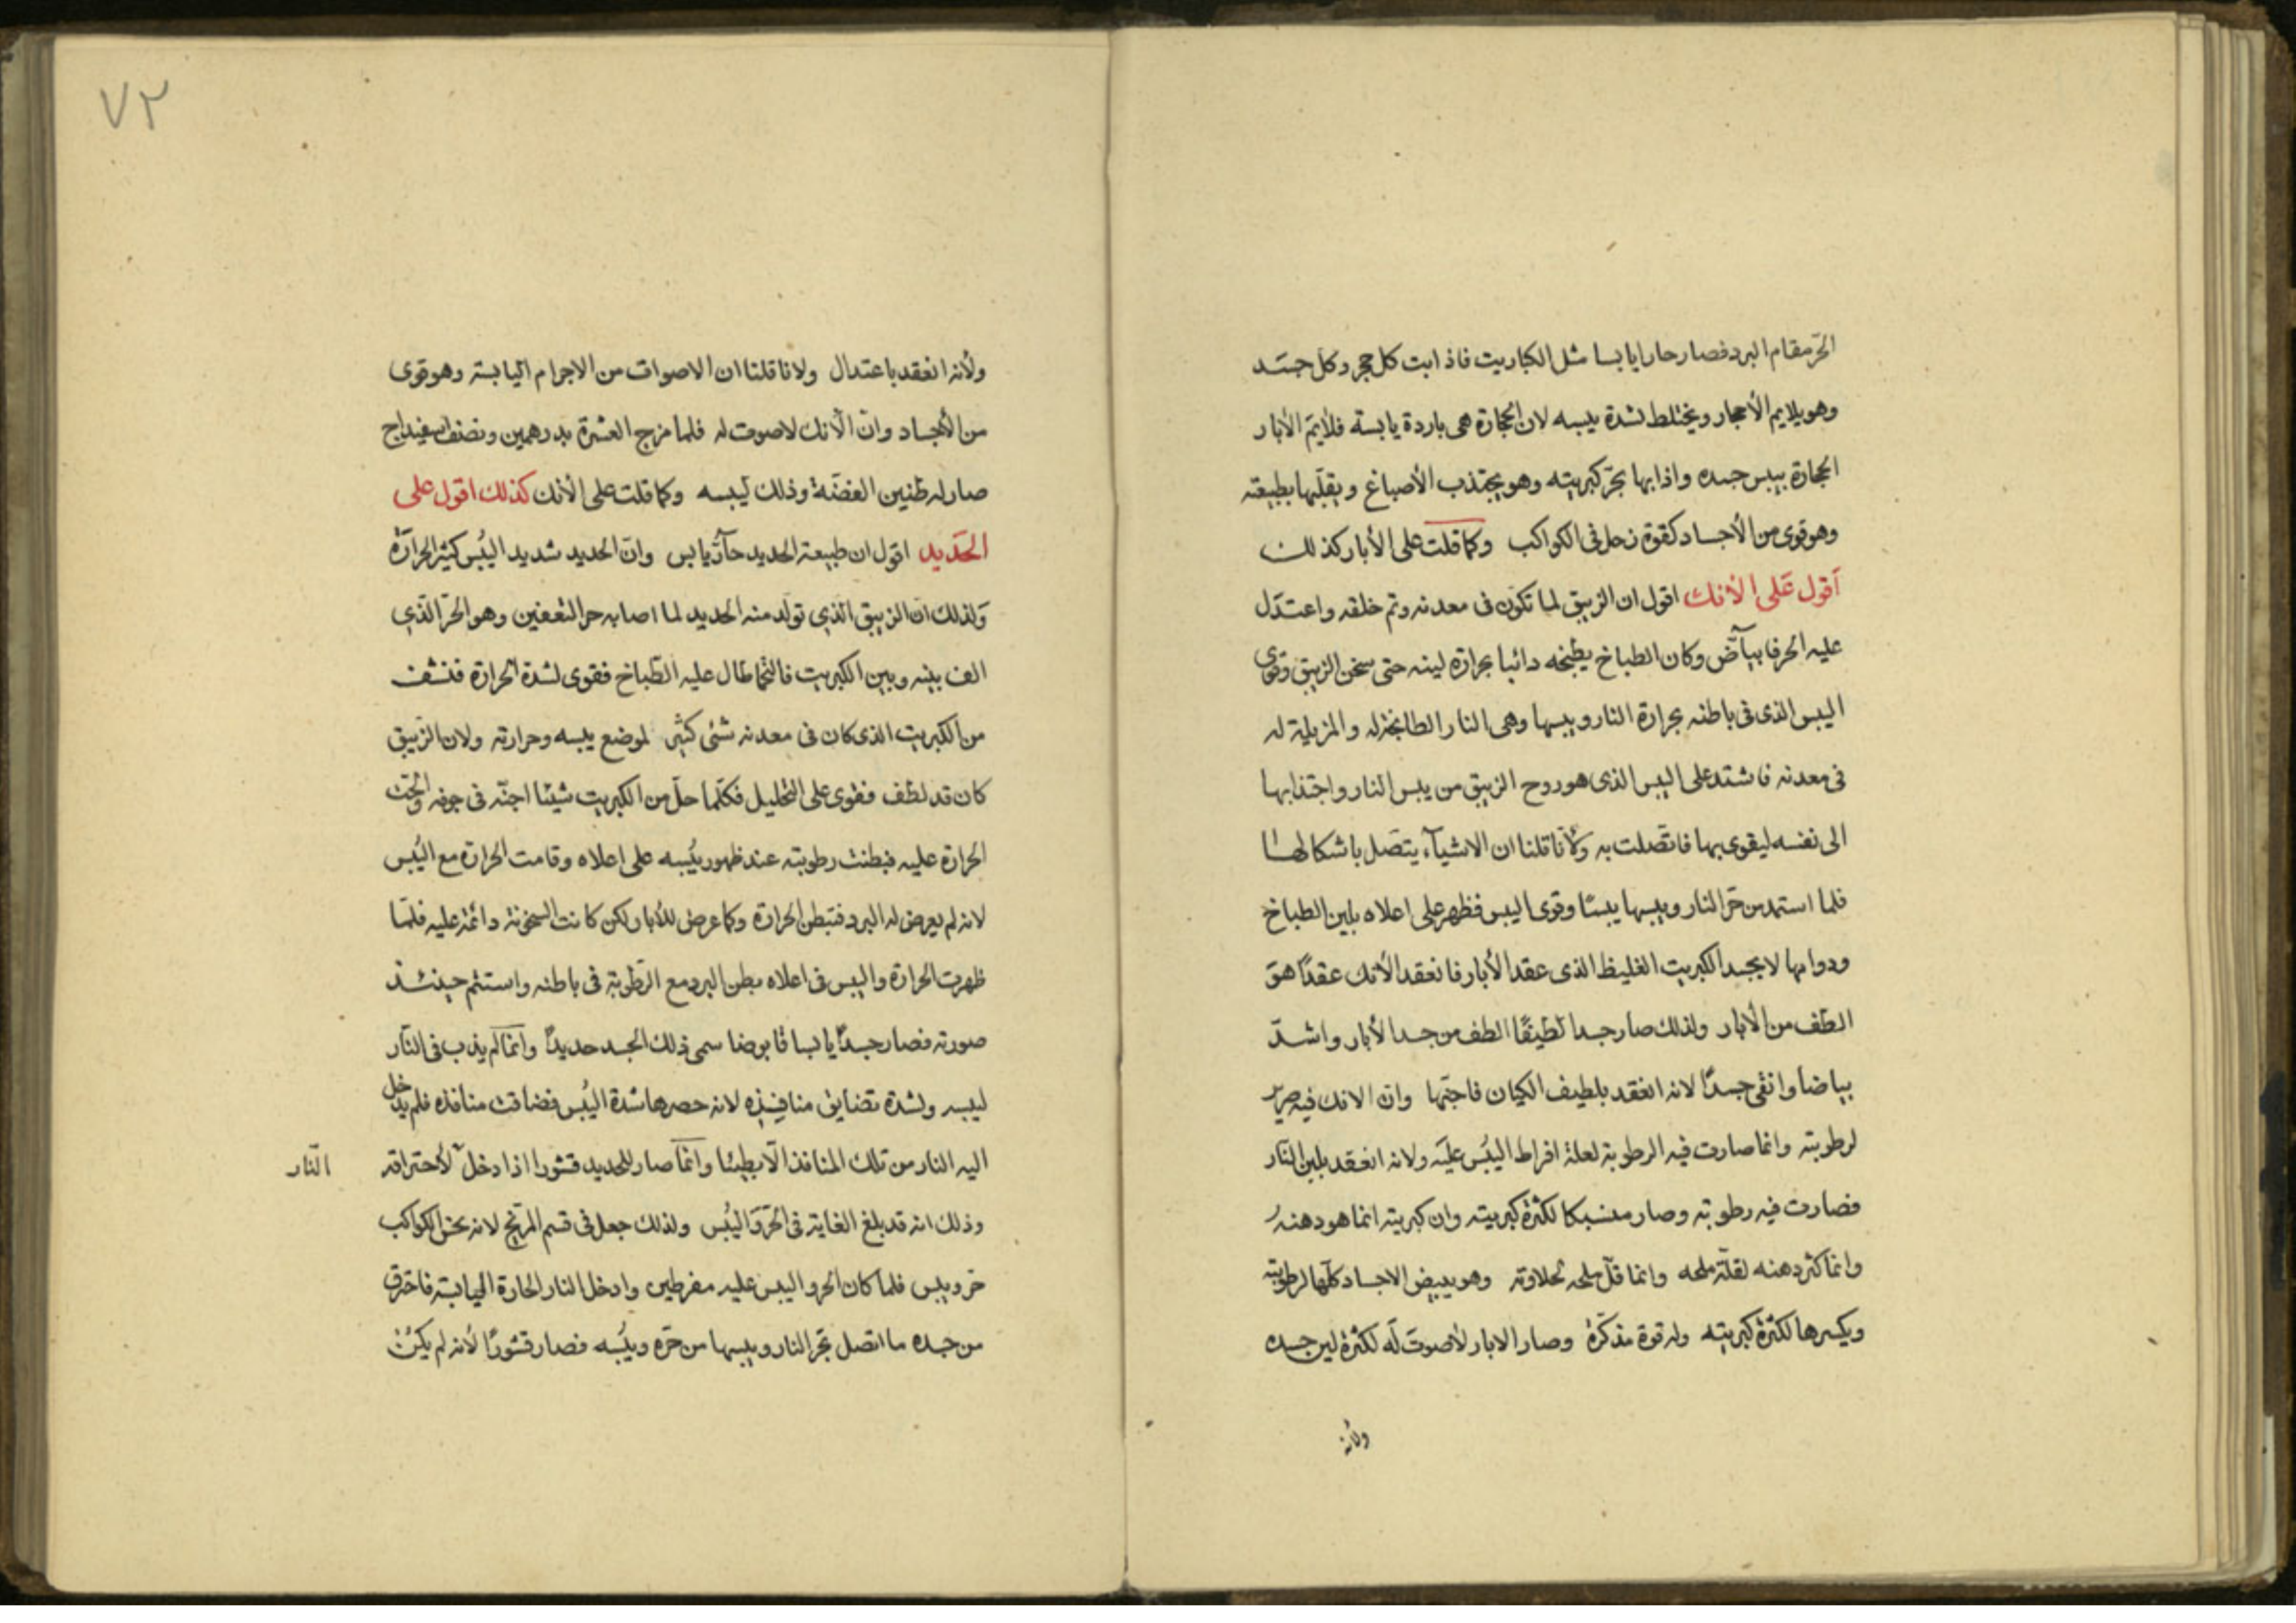 الحرّ مقام البرد فصار حارا يابسا مثل الكباريت فاذابت كل حجر وكل جسد
وهو يلايم الأحجار ويختلط لشدة يبسه لان الحجارة هى باردة يابسة فلايم الأبار
الحجارة بيبس جسده واذابها بحرّ كبريتيه وهو يجتذب الأصباغ ويقلبها بطبيعته
وهو قوى من الأجساد كقوة زحل فى الكواكب وكما قلت على الأبار كذلك
أقول على الأنك اقول ان الزيبق لما تكون فى معدنه وتم خلقه واعتدل
عليه الحر فابياض وكان الطباخ يطبخه دائبا بحرارة لينه حتى سخن الزيبق وقوى
اليبس الذى فى باطنه بحرارة النار ويبسها وهى النار الطابخة له والمزيلة له
فى معدنه فاشتد على اليبس الذى هو روح الزيبق من يبس النار واجتذابها
الى نفسه ليقوى بها فاتصلت به ولأنا قلنا ان الاشيآء يتصل باشكالها
فلما استمد من حرّ النار ويبسها يبسًا وقوى اليبس فظهر على اعلاه بلين الطباخ
ودوامها لا بجسد الكبريت الغليظ الذى عقد الأبار فانعقد الأنك عقدًا هو
الطف من الأبار ولذلك صار جسدا لطيفًا الطف من جسد الأبار واشدّ
بياضا وانقى جسدًا لانه انعقد بلطيف الكيان فاجتها وان الانك فيه صرير
لرطوبته وانما صارت فيه الرطوبة لعلة افراط اليبُس عليه ولانه انعقد بلين النّار
فصارت فيه رطوبته وصار منسبكا لكثرة كبريتيه وان كبريته انما هو دهنهُ
وانما كثر دهنه لقلّة ملحه وانما قلّ ملحه لحلاوته وهو يبيض الاجساد كلّها لرطوبته
ويكسرها لكثرة كبريتيه وله قوة مذكّرة وصار الابار لأصوت له لكثرة لين جسده
ولأنه
٧٢
ولأنه انعقد باعتدال ولانا قلنا ان الاصوات من الاجرام اليابسة وهو قوى
من الأجساد وان الأنك لاصوت له فلما مزج العشرة بدرهمين ونصف اسفيداج
صار له طنين الفضّة وذلك ليبسه وكما قلت على الأنك كذلك اقول على
الحديد اقول ان طبيعة الحديد حارّ يابس وان الحديد شديد اليبُس كثير الحرارة
ولذلك ان الزيبق الذي تولد منه الحديد لما اصابه حر التعفين وهو الحرّ الذي
الف بينه وبين الكبريت فالتحما طال عليه الطّباخ فقوى لشدة الحرارة فنشف
من الكبريت الذى كان فى معدنه شئى كثير لموضع يبسه وحرارته ولان الزّيبق
كان قد لطف فقوى على التحليل فكلّما حلّ من الكبريت شيئا اجنّه فى جوفه والحّت
الحرارة عليه فبطنت رطوبته عند ظهور يبُسه على اعلاه وقامت الحرارة مع اليُبس
لانه لم يعرض له البرد فتبطن الحرارة وكما عرض للأبار لكن كانت السخونة دائمة عليه فلمّا
ظهرت الحرارة واليبس فى اعلاه بطن البرد مع الرّطوبة فى باطنه واستتم حينئذ
صورته فصار جسدًا يابسا قابوضا سمى ذلك الجسد حديدًا وانما لم يذب فى النّار
ليبسه ولشدة تضايق منافيذه لانه حصرها شدة اليُبس فضاقت منافذه فلم يدخل
اليه النار من تلك المنافذ الّا بطيئا وانما صار للحديد قشورا اذا دخل لأحتراقه
النّار
وذلك انه قد بلغ الغاية فى الحرّ واليُبس ولذلك جعل فى قسم المرّيخ لانه نحس الكواكب
حر ويبس فلما كان الحر واليبس عليه مفرطين وادخل النار الحارة اليابسة فاحترق
من جسده ما اتصل بحرّ النار ويبسها من حرّه ويبُسه فصار قشورًا لأنه لم يكن